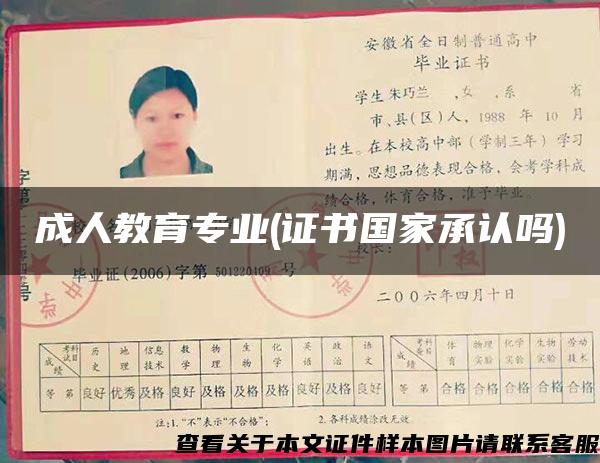 安徽省全日制普通高中
毕业证书
学生 朱巧兰 ,女 ,系 省
市、县(区)人, 1988 年 10 月
出生。在本校高中部(学制三年)学习
期满,思想品德表现合格,会考学科成
绩合格,体育合格,准予毕业。
成人教育专业(证书国家承认吗)
毕业证(2006)字第 501220109 号
二00六年四月十日
考试科目 历史 地理 信息技术 数学 物理 生物 化学 英语 政治 语文
成绩
等第 良好 优秀 及格 及格 及格 及格 及格 良好 及格 良好
考查科目 体育 物理实验 化学实验 生物实验 劳动技术
成绩
等第 合格 合格 合格 合格 合格
注:1."不"表示"不合格"; 2.各科成绩涂改无效
查看关于本文证件样本图片请联系客服